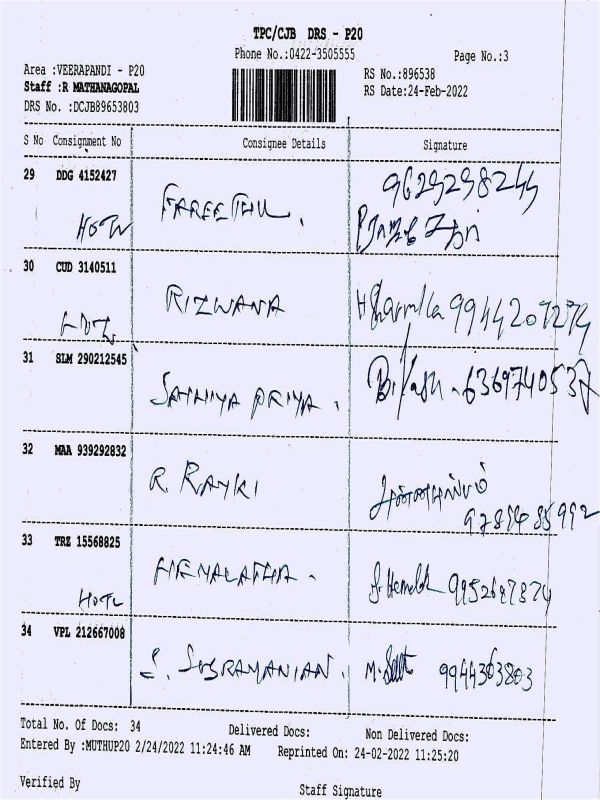 TPC/CJB DRS - P20
Phone No.:0422-3505555
Page No.:3
Area :VEERAPANDI - P20
RS No.:896538
Staff :R MATHANAGOPAL
RS Date:24-Feb-2022
DRS No. :DCJB89653803
S No Consignment No Consignee Details Signature
29 DDG 4152427
FAREETHU.
30 CUD 3140511
RIZWANA
H Sharmila 9944207274
31 SLM 290212545
SATHIYA PRIYA.
6369740537
32 MAA 939292832
R. RAYKI
33 TRZ 15568825
HEMALATHA.
34 VPL 212667008
S. SUBRAMANIAN. 9944363803
Total No. Of Docs: 34 Delivered Docs: Non Delivered Docs:
Entered By :MUTHUP20 2/24/2022 11:24:46 AM Reprinted On: 24-02-2022 11:25:20
Verified By Staff Signature